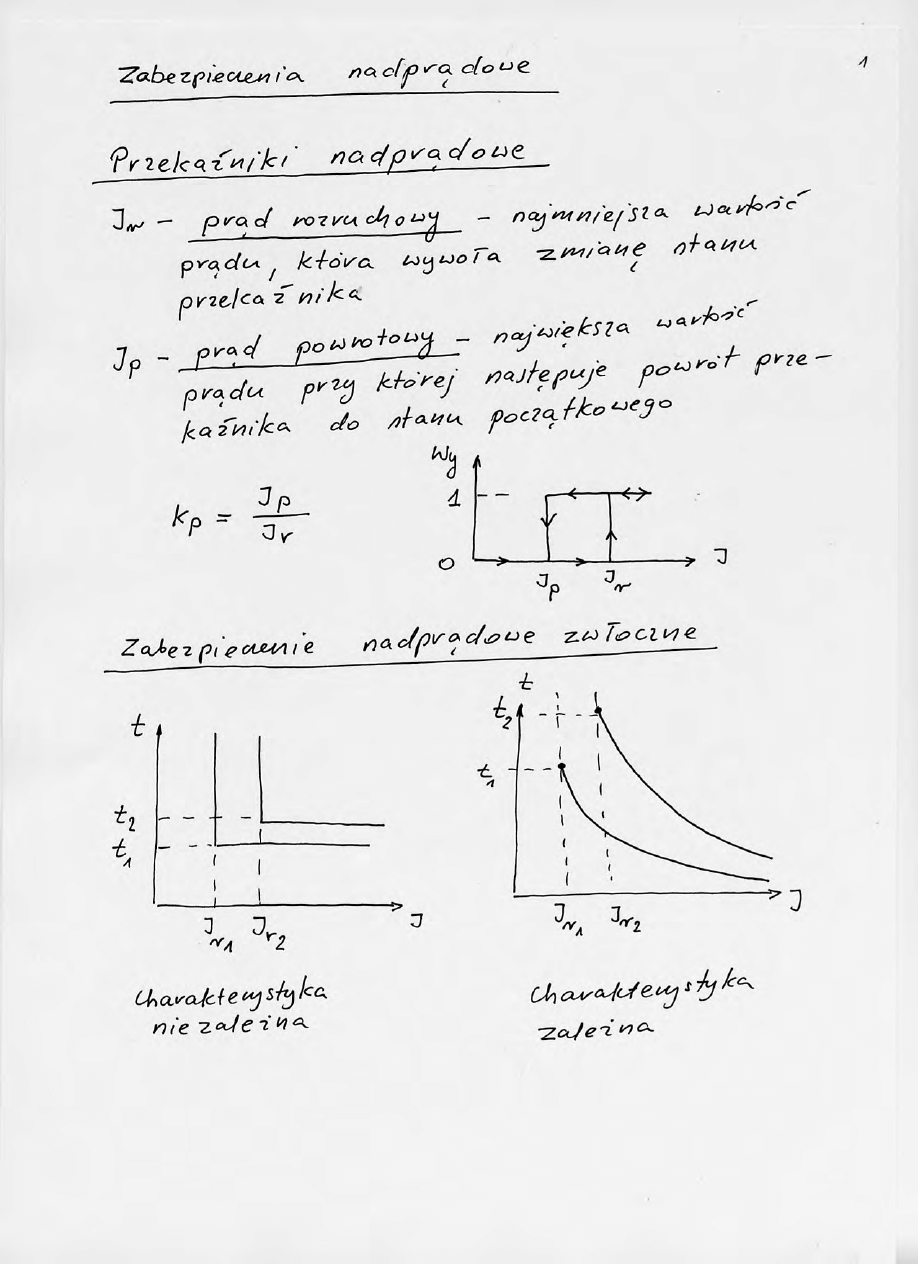 1
Zabezpieczenia nadprądowe
Przekaźniki nadprądowe
Ir – prąd rozruchowy – najmniejsza wartość
prądu, która wywoła zmianę stanu
przekaźnika
Ip – prąd powrotowy – największa wartość
prądu przy której następuje powrót prze–
kaźnika do stanu początkowego
kp = Ip / Ir
Wy
1
0
Ip Ir I
Zabezpieczenie nadprądowe zwłoczne
t
t2
t1
Ir1 Ir2 I
t
t2
t1
Ir1 Ir2 I
Charakterystyka
niezależna
Charakterystyka
zależna